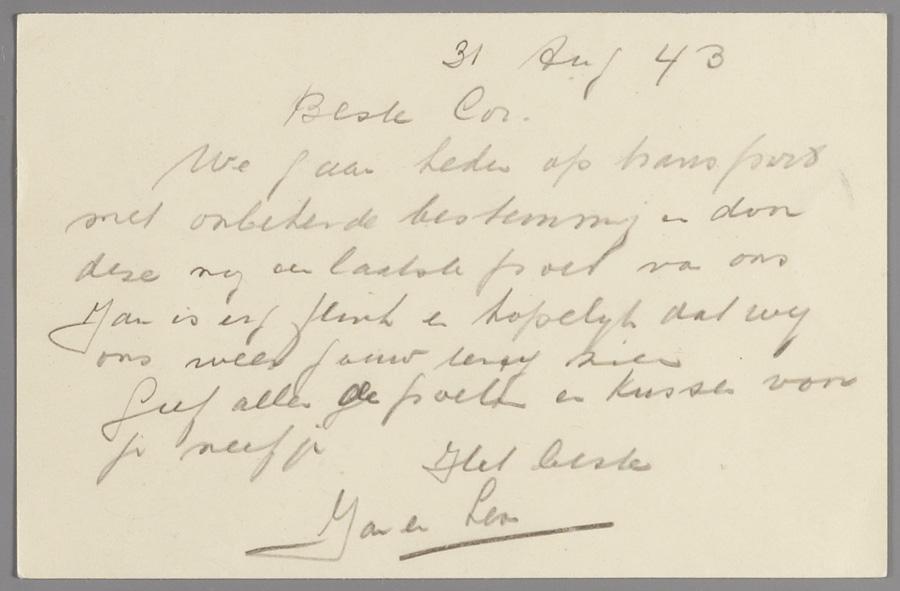 31 Aug 43
Beste Cor.
We gaan heden op transport
met onbekende bestemming en door
deze nog een laatste groet van ons
Jan is erg flink en hopelijk dat wij
ons weer gauw terug zien
Geef allen de groeten en kussen voor
je neefje
Het beste
Jan en